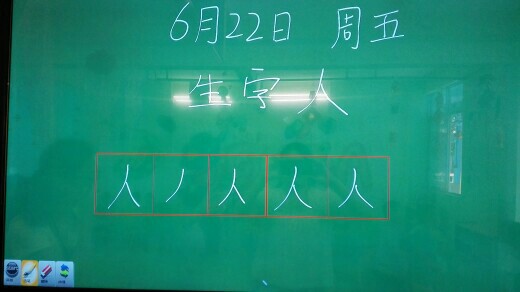 6月22日 周五
生字人
人丿人人人